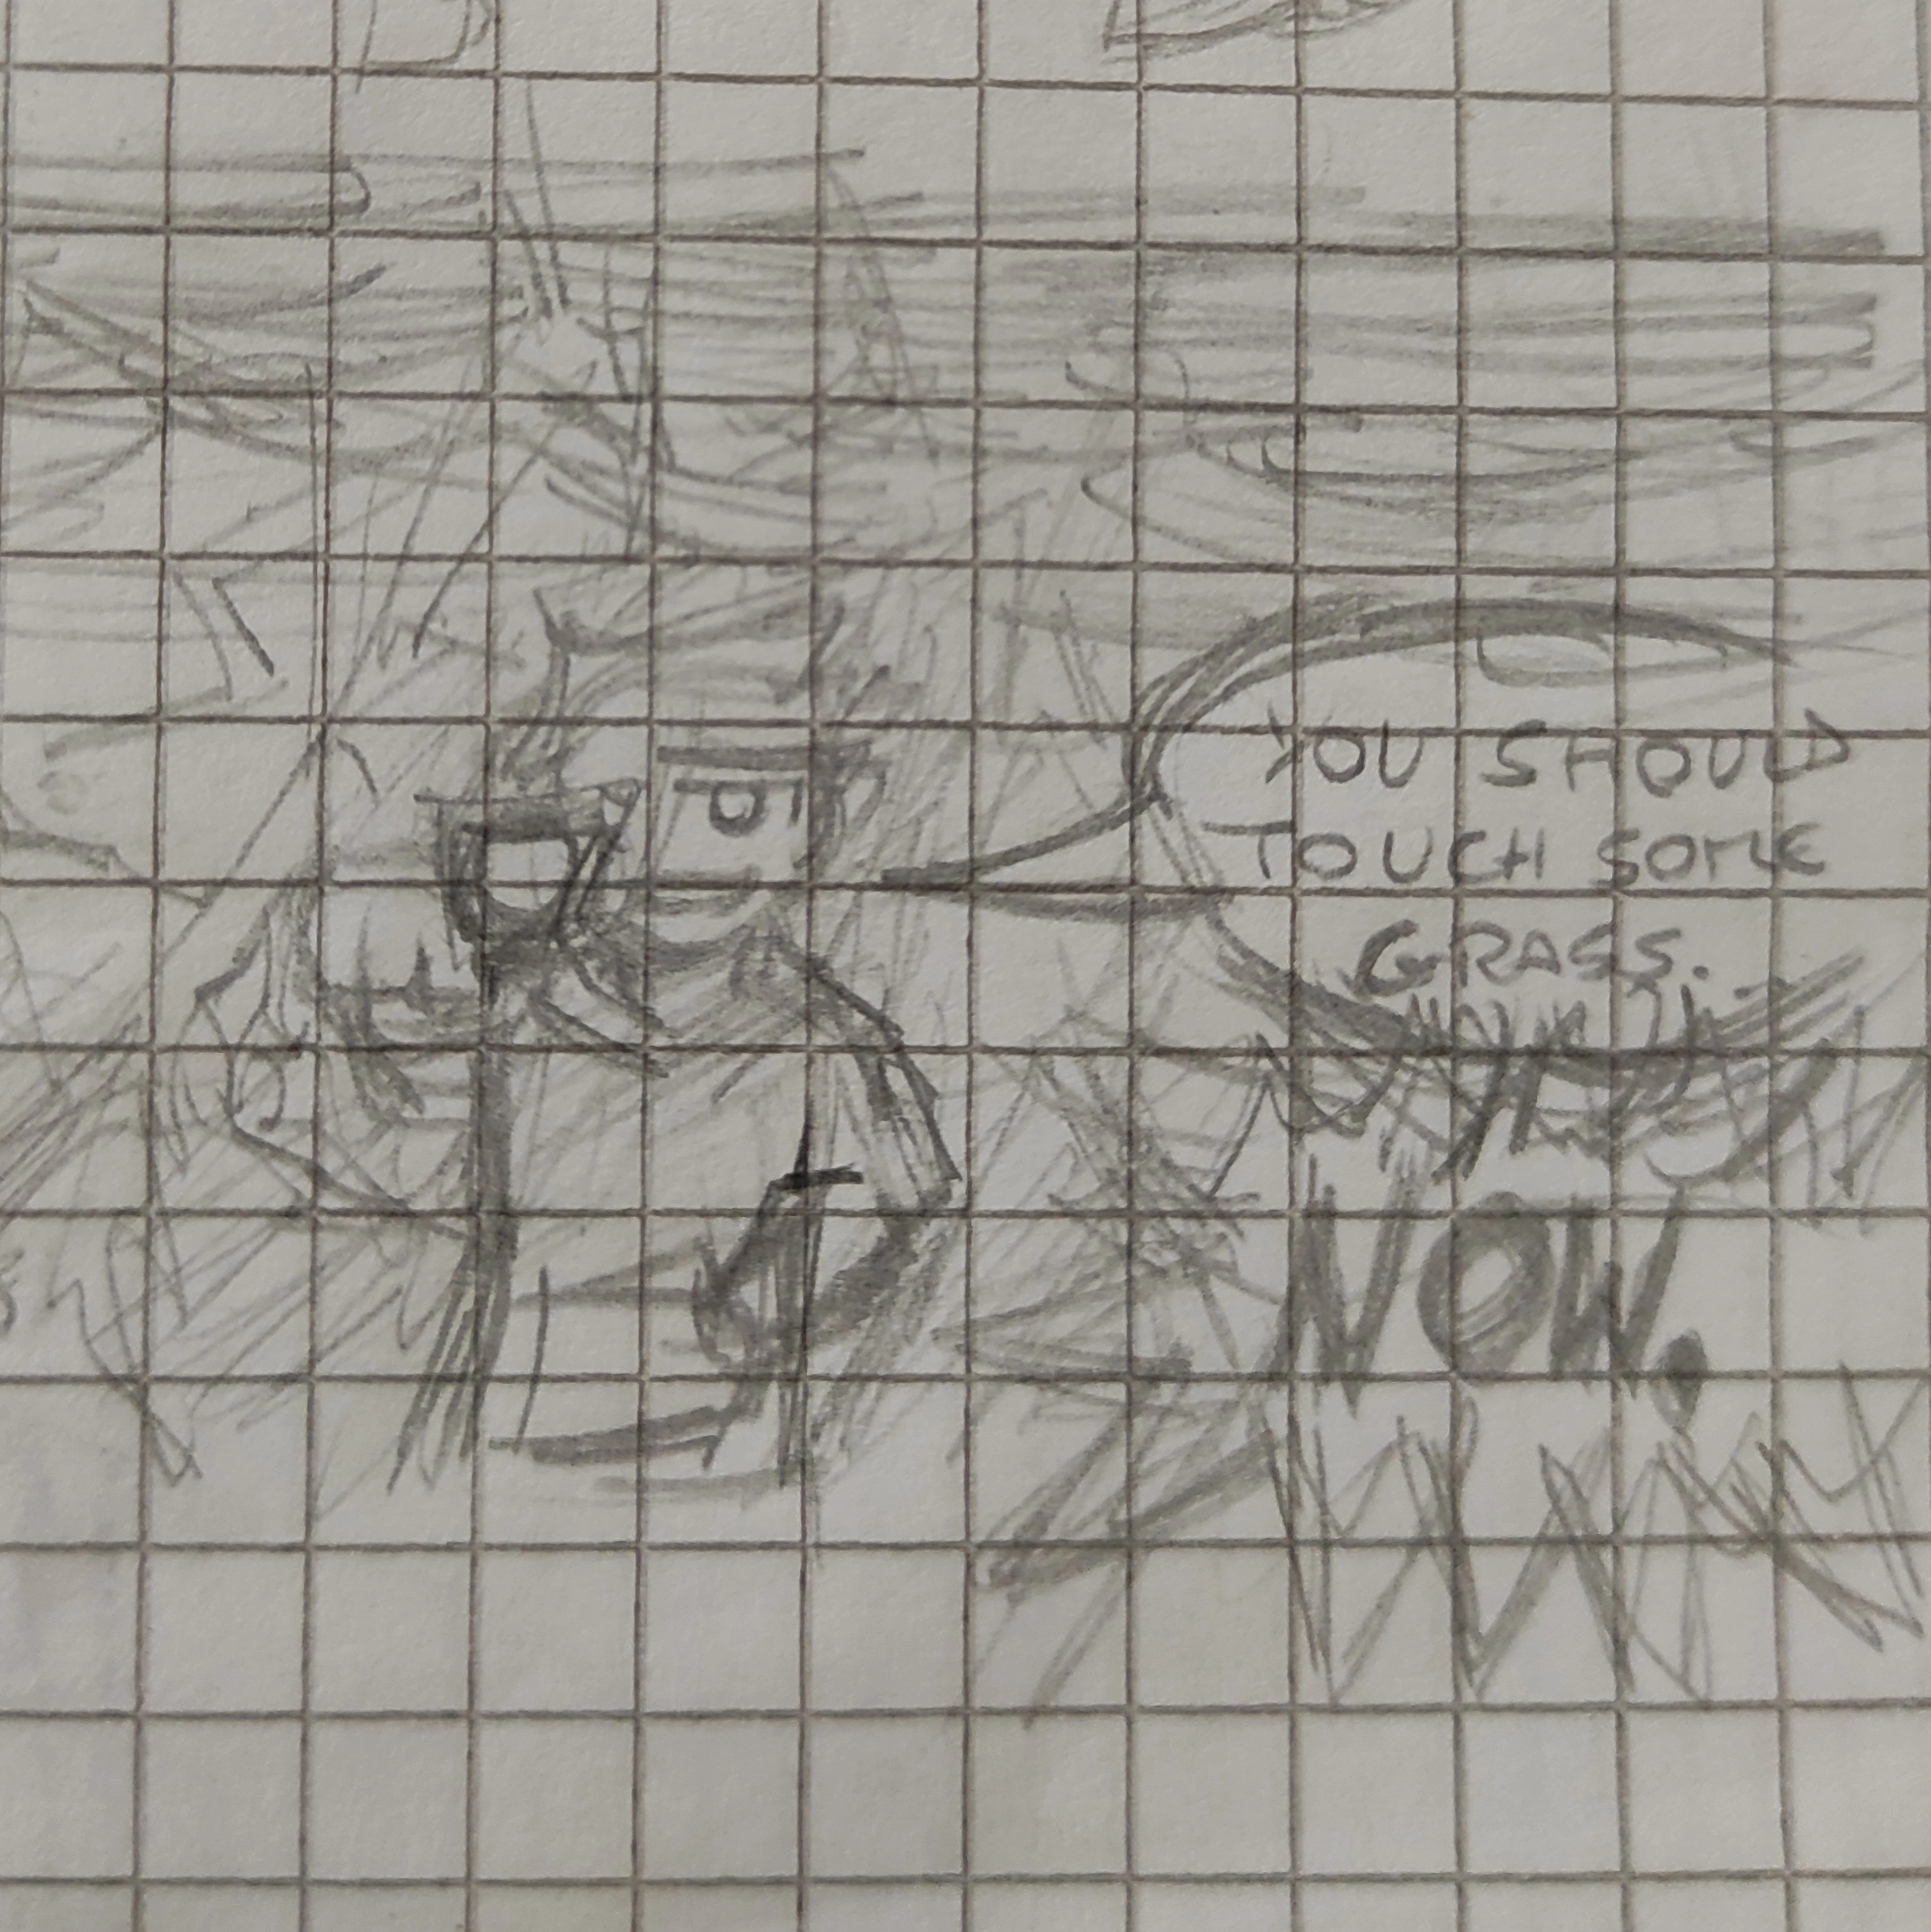 YOU SHOULD
TOUCH SOME
GRASS.
NOW.